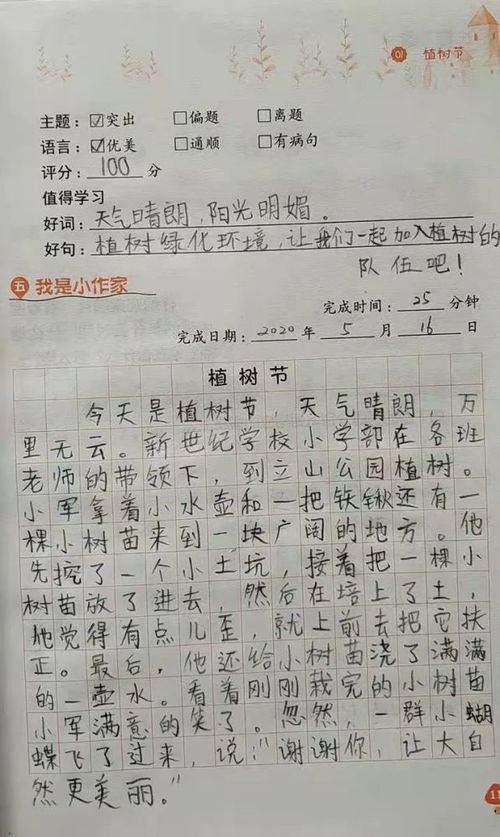 01 植树节
主题：☑突出 □偏题 □离题
语言：☑优美 □通顺 □有病句
评分：100 分
值得学习
好词：天气晴朗，阳光明媚。
好句：植树绿化环境，让我们一起加入植树的
队伍吧！
五 我是小作家
完成时间：25 分钟
完成日期：2020 年 5 月 16 日
植树节
今天是植树节，天气晴朗，万
里无云。新世纪学校小学部在各班
老师的带领下，到立山公园植树。
小军拿着小水壶和一把铁锹还有一
棵小树苗来到一块广阔的地方。他
先挖了一个小土坑，接着把一棵小
树苗放了进去，然后在培上了土，
他觉得有点儿歪，就上前去把它扶
正。最后，他还给小树苗浇了满满
的一壶水。看着刚刚栽完的小树苗
小军满意的笑了。忽然，一群小蝴
蝶飞了过来，说："谢谢你，让大自
然更美丽。"